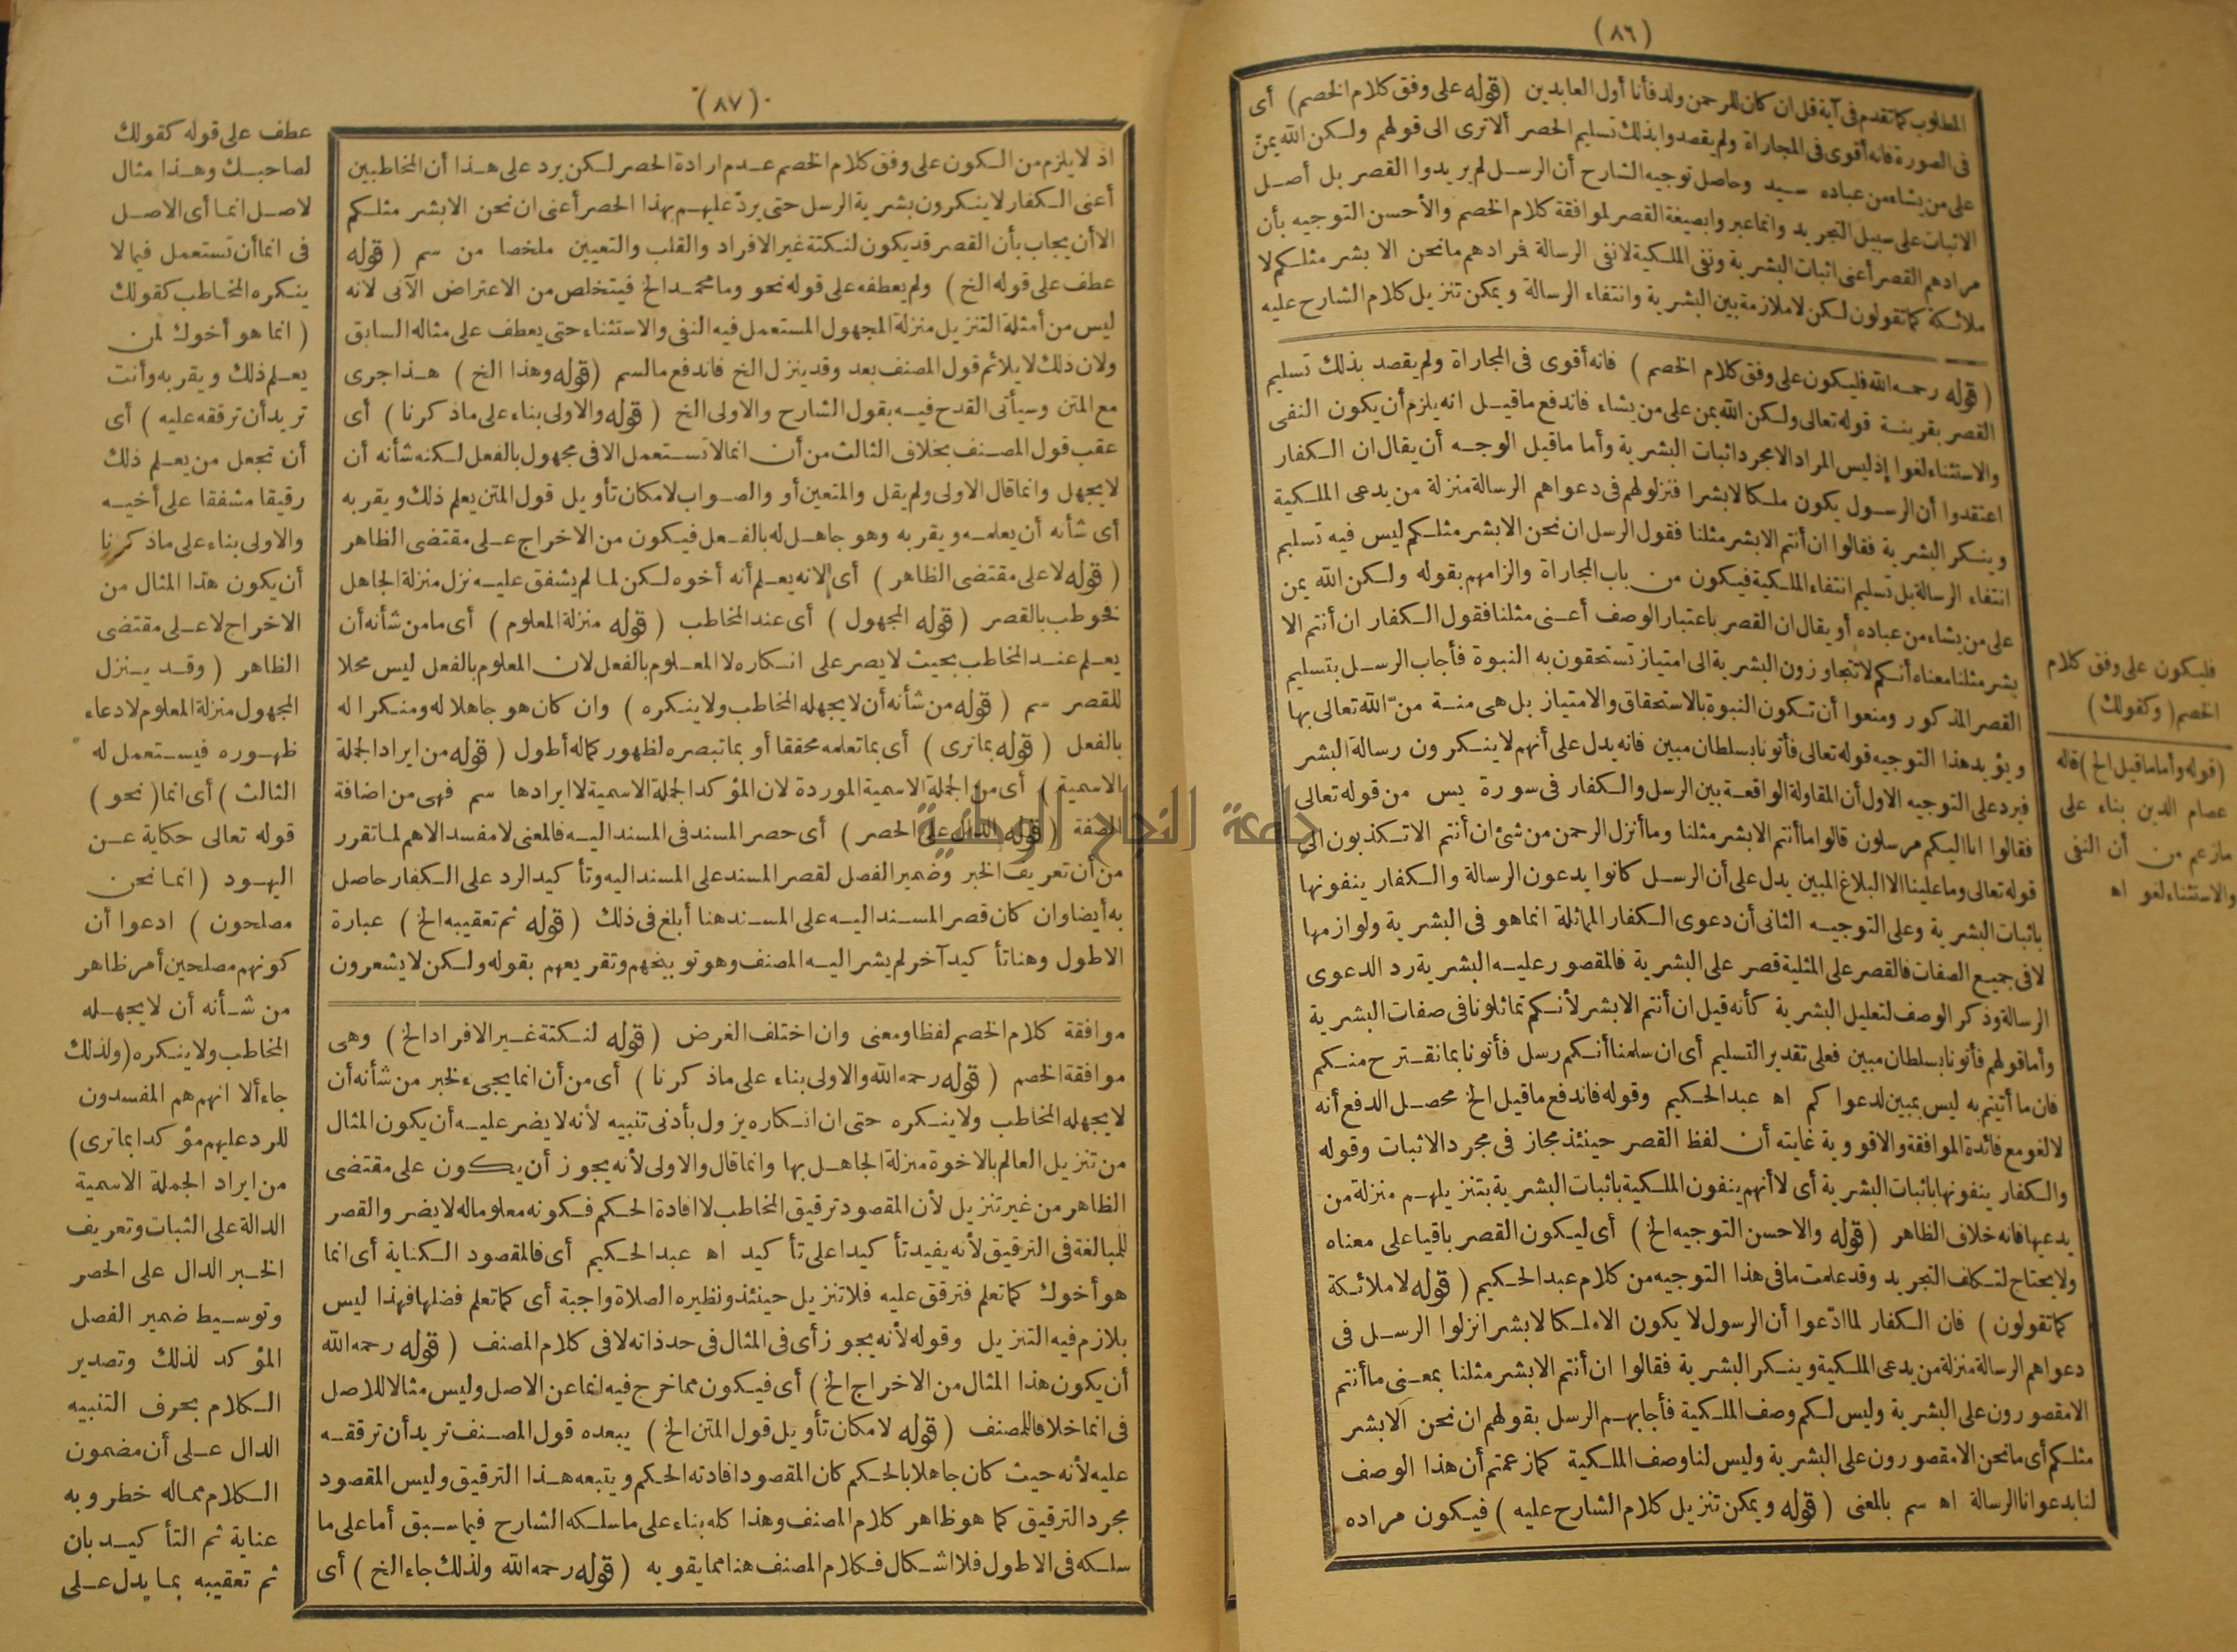 (٨٦)
المطلوب كما تقدم فى آية قل ان كان للرحمن ولد فأنا أول العابدين (قوله على وفق كلام الخصم) أى
فى الصورة فانه أقوى فى المجاراة ولم يقصدوا بذلك تسليم الحصر ألا ترى الى قولهم ولكن الله يمنّ
على من يشاء من عباده سيد وحاصل توجيه الشارح أن الرسل لم يريدوا القصر بل أصل
الاثبات على سبيل التجريد وانما عبروا بصيغة القصر لموافقة كلام الخصم والأحسن التوجيه بأن
مرادهم القصر أعنى اثبات البشرية ونفى الملكية لا نفى الرسالة فمرادهم ما نحن الا بشر مثلكم لا
ملائكة كما تقولون لكن لا ملازمة بين البشرية وانتفاء الرسالة ويمكن تنزيل كلام الشارح عليه
(قوله رحمه الله فليكون على وفق كلام الخصم) فانه أقوى فى المجاراة ولم يقصد بذلك تسليم
القصر بقرينة قوله تعالى ولكن الله يمن على من يشاء فاندفع ما قيل انه يلزم أن يكون النفى
والاستثناء لغوا إذ ليس المراد الا مجرد اثبات البشرية وأما ما قيل الوجه أن يقال ان الكفار
اعتقدوا أن الرسول يكون ملكا لا بشرا فنزلوهم فى دعواهم الرسالة منزلة من يدعى الملكية
وينكر البشرية فقالوا ان أنتم الا بشر مثلنا فقول الرسل ان نحن الا بشر مثلكم ليس فيه تسليم
انتفاء الرسالة بل تسليم انتفاء الملكية فيكون من باب المجاراة والزامهم بقوله ولكن الله يمن
على من يشاء من عباده أو يقال ان القصر باعتبار الوصف أعنى مثلنا فقول الكفار ان أنتم الا
بشر مثلنا معناه أنكم لا تتجاوزون البشرية الى امتياز تستحقون به النبوة فأجاب الرسل بتسليم
القصر المذكور ومنعوا أن تكون النبوة بالاستحقاق والامتياز بل هى منة منّ الله تعالى بها
ويؤيد هذا التوجيه قوله تعالى فأتونا بسلطان مبين فانه يدل على أنهم لا ينكرون رسالة البشر
فيرد على التوجيه الاول أن المقاولة الواقعة بين الرسل والكفار فى سورة يس من قوله تعالى
فقالوا انا اليكم مرسلون قالوا ما أنتم الا بشر مثلنا وما أنزل الرحمن من شئ ان أنتم الا تكذبون الى
قوله تعالى وما علينا الا البلاغ المبين يدل على أن الرسل كانوا يدعون الرسالة والكفار ينفونها
باثبات البشرية وعلى التوجيه الثانى أن دعوى الكفار المماثلة انما هو فى البشرية ولوازمها
لا فى جميع الصفات فالقصر على المثلية قصر على البشرية فالمقصور عليه البشرية رد الدعوى
الرسالة وذكر الوصف لتعليل البشرية كأنه قيل ان أنتم الا بشر لأنكم تماثلونا فى صفات البشرية
وأما قولهم فأتونا بسلطان مبين فعلى تقدير التسليم أى ان سلمنا أنكم رسل فأتونا بما نقترح منكم
فان ما أتيتم به ليس بمبين لدعواكم اه عبد الحكيم وقوله فاندفع ما قيل الخ محصل الدفع أنه
لا لغو مع فائدة الموافقة والاقووية غايته أن لفظ القصر حينئذ مجاز فى مجرد الاثبات وقوله
والكفار ينفونها باثبات البشرية أى لا أنهم ينفون الملكية باثبات البشرية بتنزيلهم منزلة من
يدعيها فانه خلاف الظاهر (قوله والاحسن التوجيه الخ) أى ليكون القصر باقيا على معناه
ولا يحتاج لتكلف التجريد وقد علمت ما فى هذا التوجيه من كلام عبد الحكيم (قوله لا ملائكة
كما تقولون) فان الكفار لما ادّعوا أن الرسول لا يكون الا ملكا لا بشرا نزلوا الرسل فى
دعواهم الرسالة منزلة من يدعى الملكية وينكر البشرية فقالوا ان أنتم الا بشر مثلنا بمعنى ما أنتم
الا مقصورون على البشرية وليس لكم وصف الملكية فأجابهم الرسل بقولهم ان نحن الا بشر
مثلكم أى ما نحن الا مقصورون على البشرية وليس لنا وصف الملكية كما زعمتم أن هذا الوصف
لنا بدعوانا الرسالة اه سم بالمعنى (قوله ويمكن تنزيل كلام الشارح عليه) فيكون مراده
فليكون على وفق كلام
الخصم (وكقولك)
(قوله وأما ما قيل الخ) قاله
عصام الدين بناء على
ما زعم من أن النفى
والاستثناء لغو اه
(٨٧)
اذ لا يلزم من الكون على وفق كلام الخصم عدم ارادة الحصر لكن يرد على هذا أن المخاطبين
أعنى الكفار لا ينكرون بشرية الرسل حتى يردّ عليهم بهذا الحصر أعنى ان نحن الا بشر مثلكم
الا أن يجاب بأن القصر قد يكون لنكتة غير الافراد والقلب والتعيين ملخصا من سم (قوله
عطف على قوله الخ) ولم يعطفه على قوله نحو وما محمد الخ فيتخلص من الاعتراض الآتى لانه
ليس من أمثلة التنزيل منزلة المجهول المستعمل فيه النفى والاستثناء حتى يعطف على مثاله السابق
ولان ذلك لا يلائم قول المصنف بعد وقد ينزل الخ فاندفع ما لسم (قوله وهذا الخ) هذا جرى
مع المتن وسيأتى القدح فيه بقول الشارح والاولى الخ (قوله والاولى بناء على ما ذكرنا) أى
عقب قول المصنف بخلاف الثالث من أن انما لا تستعمل الا فى مجهول بالفعل لكنه شأنه أن
لا يجهل وانما قال الاولى ولم يقل والمتعين أو والصواب لامكان تأويل قول المتن يعلم ذلك ويقر به
أى شأنه أن يعلمه ويقر به وهو جاهل له بالفعل فيكون من الاخراج على مقتضى الظاهر
(قوله لا على مقتضى الظاهر) أى لانه يعلم أنه أخوه لكن لما لم يشفق عليه نزل منزلة الجاهل
فخوطب بالقصر (قوله المجهول) أى عند المخاطب (قوله منزلة المعلوم) أى ما من شأنه أن
يعلم عند المخاطب بحيث لا يصر على انكاره لا المعلوم بالفعل لان المعلوم بالفعل ليس محلا
للقصر سم (قوله من شأنه أن لا يجهله المخاطب ولا ينكره) وان كان هو جاهلا له ومنكرا له
بالفعل (قوله بما ترى) أى بما تعلمه محققا أو بما تبصره لظهور كماله أطول (قوله من ايراد الجملة
الاسمية) أى من الجملة الاسمية الموردة لان المؤكد الجملة الاسمية لا ايرادها سم فهى من اضافة
الصفة (قوله الدال على الحصر) أى حصر المسند فى المسند اليه فالمعنى لا مفسد الا هم لما تقرر
من أن تعريف الخبر وضمير الفصل لقصر المسند على المسند اليه وتأكيد الرد على الكفار حاصل
به أيضا وان كان قصر المسند اليه على المسند هنا أبلغ فى ذلك (قوله ثم تعقيبه الخ) عبارة
الاطول وهنا تأكيد آخر لم يشر اليه المصنف وهو توبيخهم وتقريعهم بقوله ولكن لا يشعرون
موافقة كلام الخصم لفظا ومعنى وان اختلف الغرض (قوله لنكتة غير الافراد الخ) وهى
موافقة الخصم (قوله رحمه الله والاولى بناء على ما ذكرنا) أى من أن انما يجىء لخبر من شأنه أن
لا يجهله المخاطب ولا ينكره حتى ان انكاره يزول بأدنى تنبيه لأنه لا يضر عليه أن يكون المثال
من تنزيل العالم بالاخوة منزلة الجاهل بها وانما قال والاولى لأنه يجوز أن يكون على مقتضى
الظاهر من غير تنزيل لأن المقصود ترقيق المخاطب لا افادة الحكم فكونه معلوما له لا يضر والقصر
للمبالغة فى الترقيق لأنه يفيد تأكيدا على تأكيد اه عبد الحكيم أى فالمقصود الكناية أى انما
هو أخوك كما تعلم فترقق عليه فلا تنزيل حينئذ ونظيره الصلاة واجبة أى كما تعلم فضلها فهذا ليس
بلازم فيه التنزيل وقوله لأنه يجوز أى فى المثال فى حد ذاته لا فى كلام المصنف (قوله رحمه الله
أن يكون هذا المثال من الاخراج الخ) أى فيكون مما خرج فيه انما عن الاصل وليس مثالا للاصل
فى انما خلافا للمصنف (قوله لامكان تأويل قول المتن الخ) يبعده قول المصنف تريد أن ترققه
عليه لأنه حيث كان جاهلا بالحكم كان المقصود افادته الحكم ويتبعه هذا الترقيق وليس المقصود
مجرد الترقيق كما هو ظاهر كلام المصنف وهذا كله بناء على ما سلكه الشارح فيما سبق أما على ما
سلكه فى الاطول فلا اشكال فكلام المصنف هنا مما يقويه (قوله رحمه الله ولذلك جاء الخ) أى
عطف على قوله كقولك
لصاحبك وهذا مثال
لاصل انما أى الاصل
فى انما أن تستعمل فيما لا
ينكره المخاطب كقولك
(انما هو أخوك لمن
يعلم ذلك ويقر به وأنت
تريد أن ترققه عليه) أى
أن تجعل من يعلم ذلك
رقيقا مشفقا على أخيه
والاولى بناء على ما ذكرنا
أن يكون هذا المثال من
الاخراج لا على مقتضى
الظاهر (وقد ينزل
المجهول منزلة المعلوم لادعاء
ظهوره فيستعمل له
الثالث) أى انما (نحو)
قوله تعالى حكاية عن
اليهود (انما نحن
مصلحون) ادعوا أن
كونهم مصلحين أمر ظاهر
من شأنه أن لا يجهله
المخاطب ولا ينكره (ولذلك
جاء ألا انهم هم المفسدون
للرد عليهم مؤكدا بما ترى)
من ايراد الجملة الاسمية
الدالة على الثبات وتعريف
الخبر الدال على الحصر
وتوسيط ضمير الفصل
المؤكد لذلك وتصدير
الكلام بحرف التنبيه
الدال على أن مضمون
الكلام مما له خطر وبه
عناية ثم التأكيد بان
ثم تعقيبه بما يدل على
جامعة النجاح الوطنية